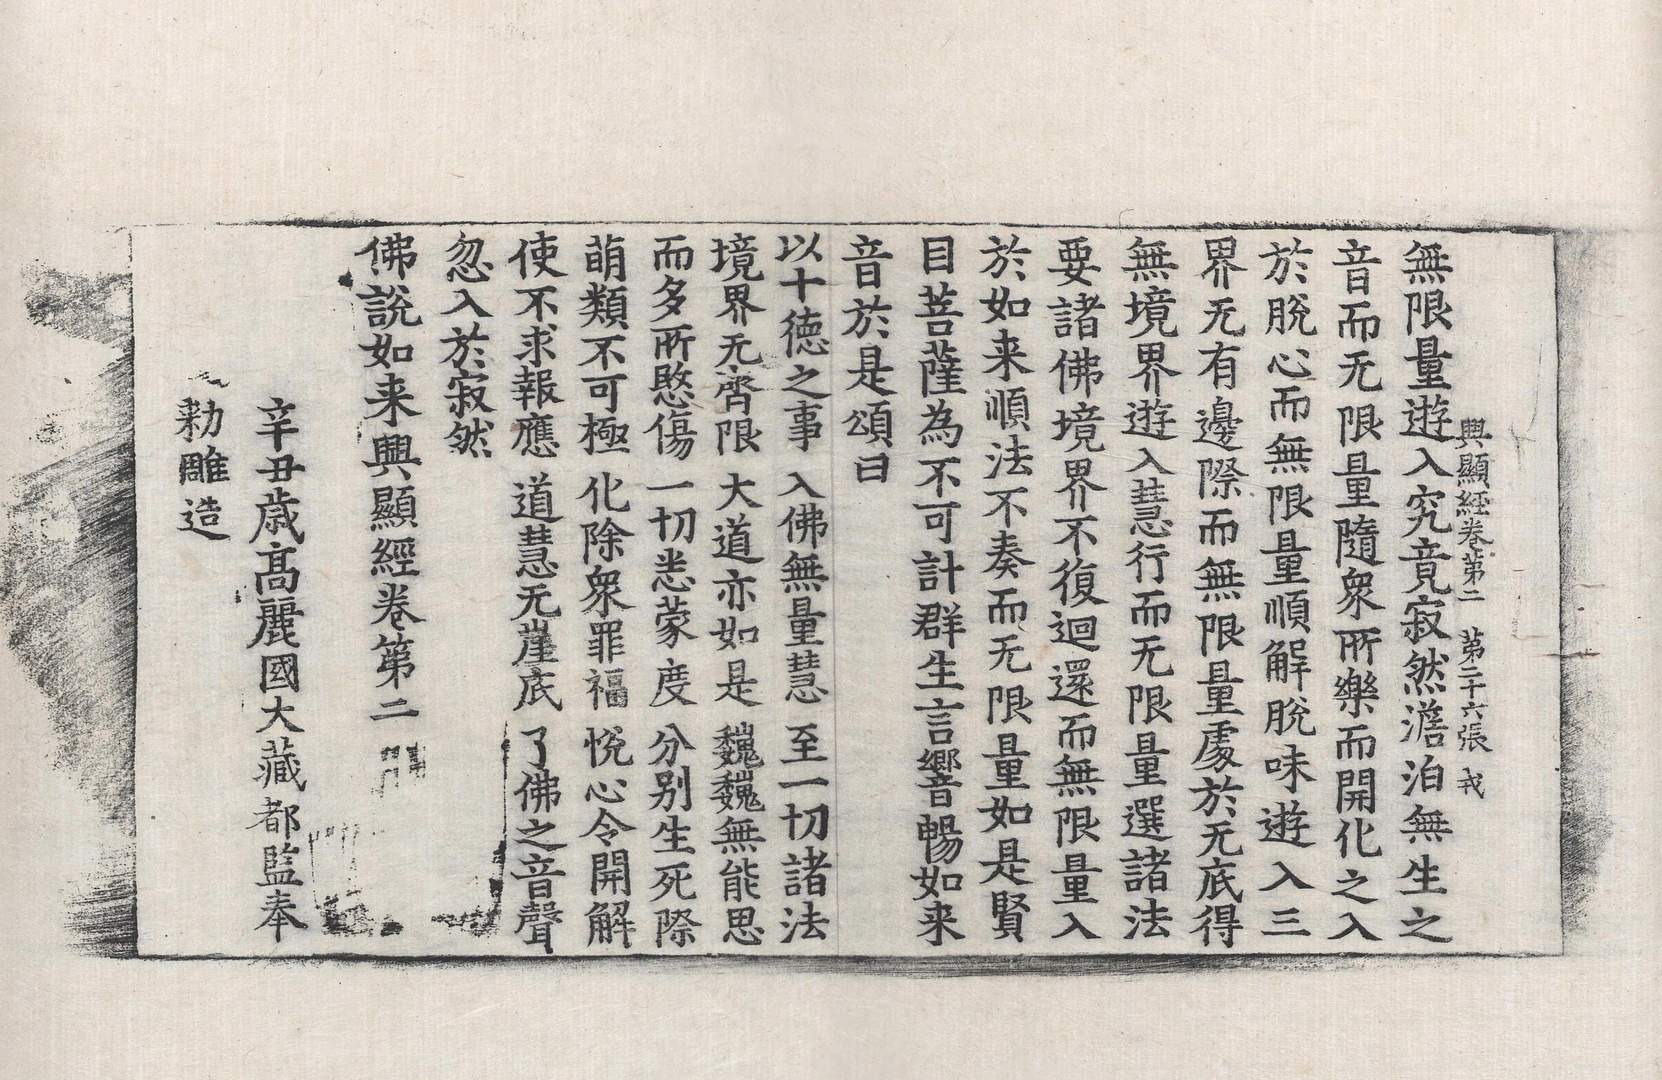 興顯経卷第二 第二十六張 戎
無限量遊入究竟寂然澹泊無生之
音而无限量隨衆所樂而開化之入
於脫心而無限量順解脫味遊入三
界无有邊際而無限量處於无底得
無境界遊入慧行而无限量選諸法
要諸佛境界不復迴還而無限量入
於如来順法不奏而无限量如是賢
目菩薩為不可計群生言響暢如来
音於是頌曰
以十德之事 入佛無量慧 至一切諸法
境界无齊限 大道亦如是 巍巍無能思
而多所愍傷 一切悉蒙度 分别生死際
萌類不可極 化除衆罪福 悅心令開解
使不求報應 道慧无崖底 了佛之音聲
忽入於寂然
佛說如来興顯經卷第二
辛丑歲高麗國大藏都監奉
勅雕造